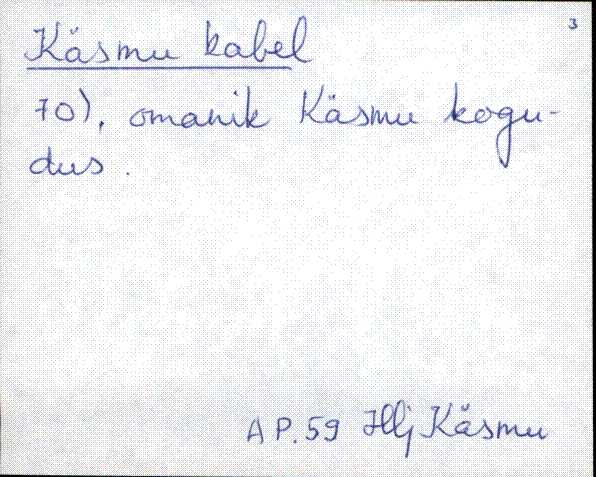 3
Käsmu kabel
70), omanik Käsmu kogu-
dus.
AP.59 Hlj Käsmu